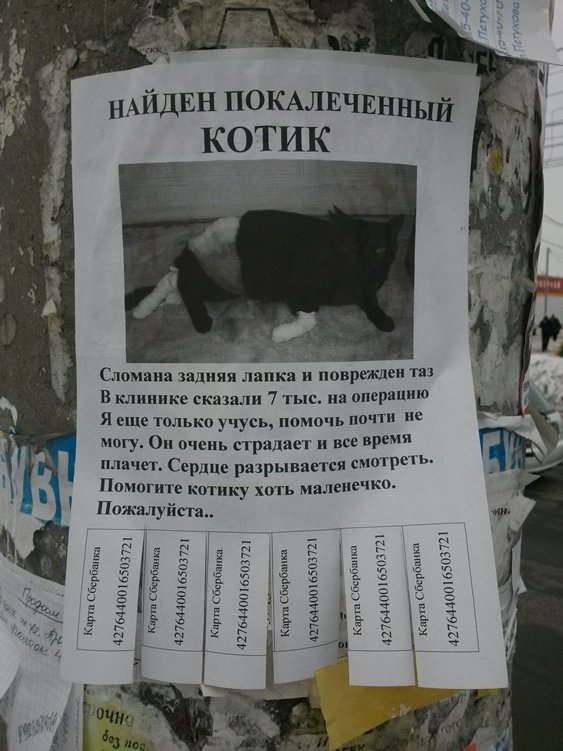 НАЙДЕН ПОКАЛЕЧЕННЫЙ
КОТИК
Сломана задняя лапка и поврежден таз
В клинике сказали 7 тыс. на операцию
Я еще только учусь, помочь почти не
могу. Он очень страдает и все время
плачет. Сердце разрывается смотреть.
Помогите котику хоть маленечко.
Пожалуйста..
Карта Сбербанка
4276440016503721
Карта Сбербанка
4276440016503721
Карта Сбербанка
4276440016503721
Карта Сбербанка
4276440016503721
Карта Сбербанка
4276440016503721
Карта Сбербанка
4276440016503721
Петухова
Петухова